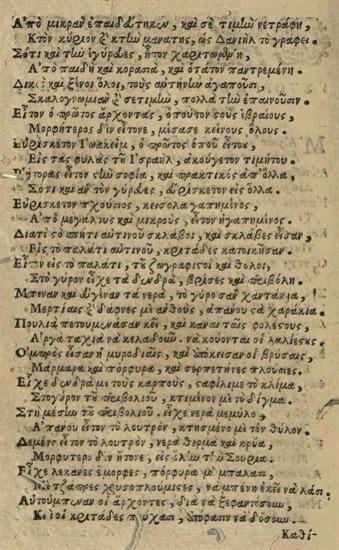 Ἀπὸ μικρὰν ἐπαιδεύτηκεν, καὶ σὲ τιμίων νετράφη,
Κτὸν κύριον κτίων μανατης, ὡς Δανιὴλ τὸ γράφει.
Σότι καὶ τῶν γύρευσες, ἦτον χαριτωμένη,
Ἀπὸ παιδὶ καὶ κορασιά, καὶ ὅταν παντρεμένη.
Δικοὶ καὶ ξένοι ὅλοι, τοὺς αὐτὴν ἀγαποῦσιν,
σετιμίων, πολλὰ τὴν ἐπαινοῦσιν.
Εἶτον ὁ πρῶτος ἄρχοντας, ὁποῦ τοὺς ἑβραίους,
Μορφήτερος δὲν εἴτονε, μίσασε κείνους ὅλους.
Εὑρίσκετον Ἰωακεὶμ, ὁ πρῶτος ὁποῦ εἶτον,
Εἰς ταῖς φυλαῖς τοῦ Ἰσραὴλ, ἀκούγετον τιμή του.
Ῥήτορας εἶτον στὴν σοφία, καὶ πρακτικὸς ἀπ' ὅλλα,
Σότι καὶ ἂν τὸν γύρευες, εὑρίσκετον εἰς ὅλλα.
Εὑρίσκετον πλούσιος, κεἰς ὅλα γαπημένος,
Ἀπὸ μεγάλους καὶ μικροὺς, εἶτον ἠγαπημένος.
Διατὶ σὸ σπήτι αὐτινοῦ σκλάβοι, καὶ σκλάβες εἶσαν,
Εἰς τὸ παλάτι αὐτινοῦ, κριτάδες κατοικῆσαν.
Εἶπν εἰς τὸ παλάτι, τοῦ ζωγραφιστοὶ καὶ θόλοι,
Στὸ γύρον εἶχε τὰ δενδρὰ, βρύσες καὶ περιβόλι.
Μπέναν καὶ εὐγέναν τὰ νερὰ, τὸ γύρο σὰν χαντάκια,
Μερτίαις δάφνες μὲ ἀνθοὺς, ἀπάνου τὰ χαράκια.
Πουλιὰ πετούμενα σαν κεῖ, καὶ κάναν ταῖς φολέους,
Ἀργὰ ταχιὰ νὰ κελαδοῦν, νὰ κούονται οἱ λαλιές τους.
Ὀμπρὸς εἶσαν ἡ μυροδιαῖς, καὶ ὑπόκεισαν οἱ βρύσαις,
Μάρμαρα καὶ πόρφυρα, καὶ σερπετῆνες πλούσιες.
Εἶχε δενδρὰ μὲ τοὺς καρποὺς, σαφίλιμε τὸ κλίμα,
Στὸ γύρον τοῦ περιβολιοῦ, κτιμένον μὲ τὸ δῖγμα.
Στὴ μέσιω τοῦ περιβολιοῦ, εἶχε νερὰ μεμύλο,
Ἀπάνου εἶτον τὸ λουτρὸν, κτησμένο μὲ τὸν ξύλον.
Δεμένο εἶτον τὸ λουτρὸν, νερὰ θερμὰ καὶ κρύα,
Μορφύτερο δὲν ἤτονε, εἰς ὅλην τὴν Σουρία.
Εἶχε λεκάνες ἔμορφες, πόρφυρα μὲ μπαλάσι,
Μετζάπρες χρυσοπλούμισες, νὰ μπένη ἐκεῖ νὰ λάσι.
Αὐτοῦ μπέναν οἱ ἄρχοντες, διὰ νὰ ξεφαντόσουν,
Κι οἱ κριτάδες πάχασι, ἀπόφασιν νὰ δόσουν.
Καθί-